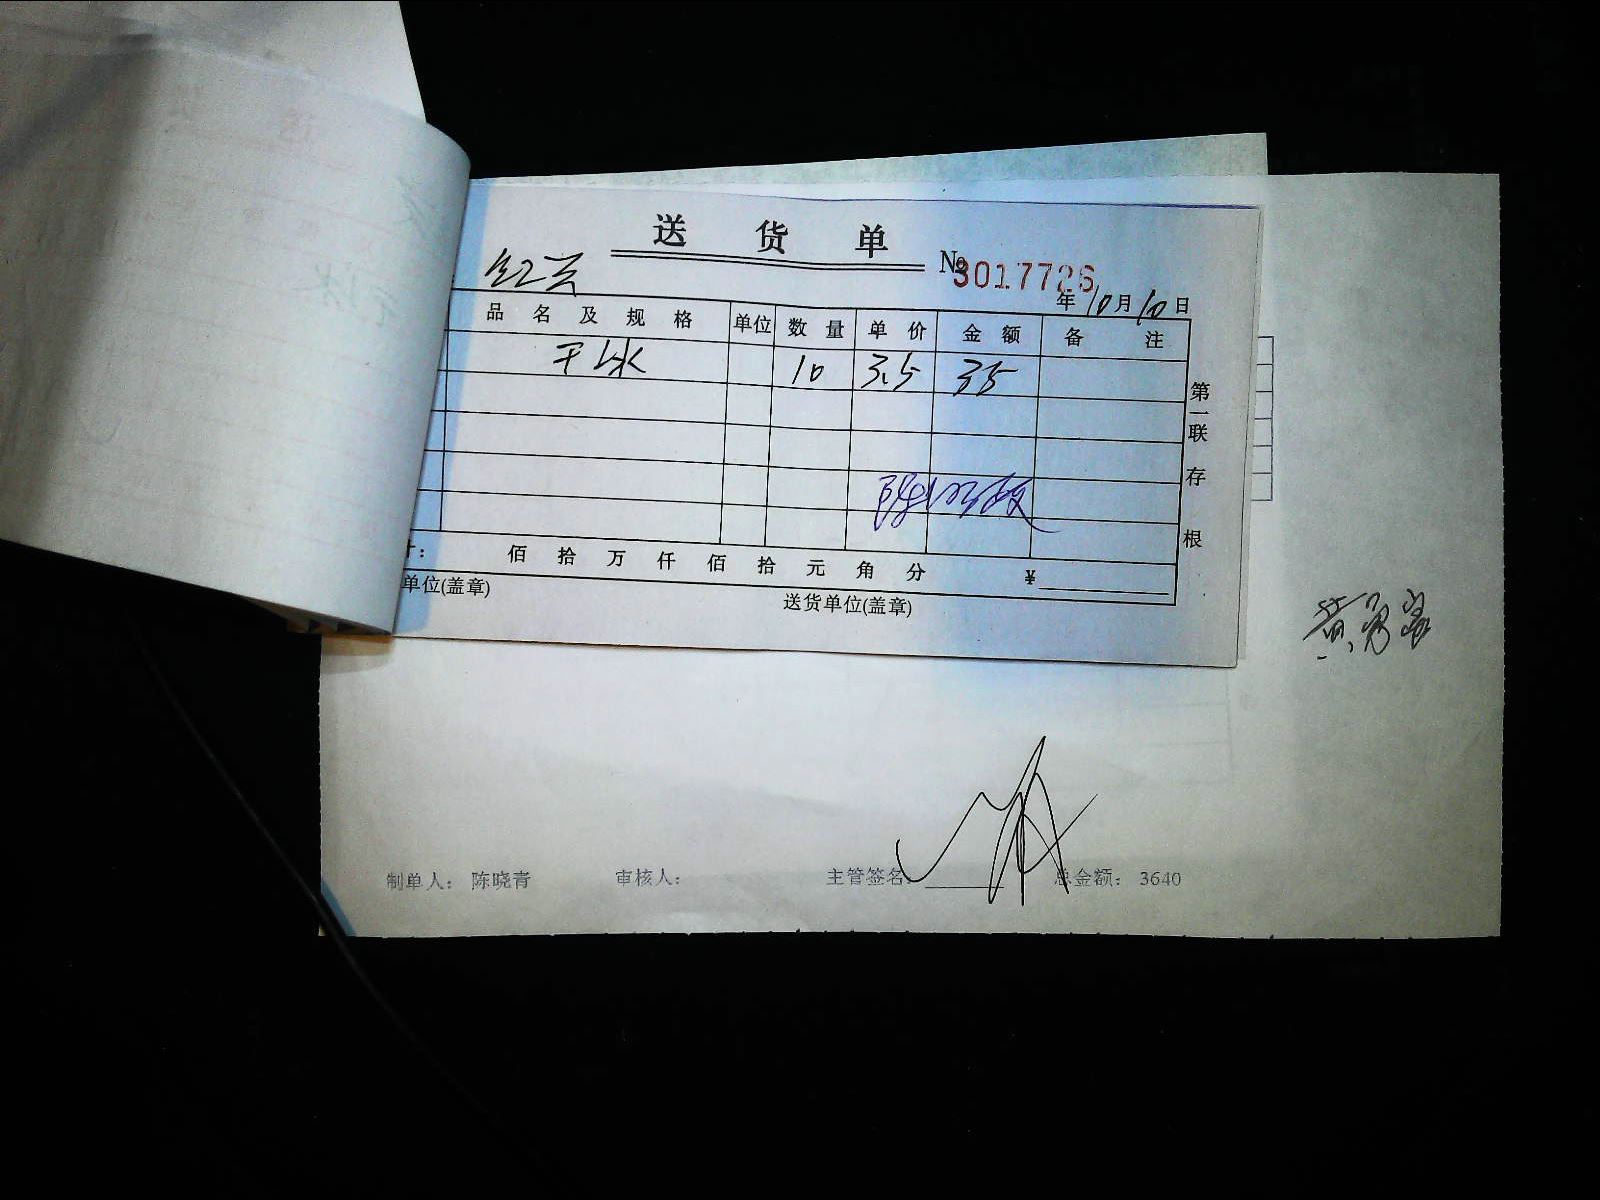 送 货 单
红云
№3017726
年10月10日
品 名 及 规 格 单位 数 量 单 价 金 额 备 注
干冰 10 3.5 35
第一联 存根
计: 佰 拾 万 仟 佰 拾 元 角 分 ¥
单位(盖章) 送货单位(盖章)
制单人: 陈晓青 审核人: 主管签名: 总金额: 3640